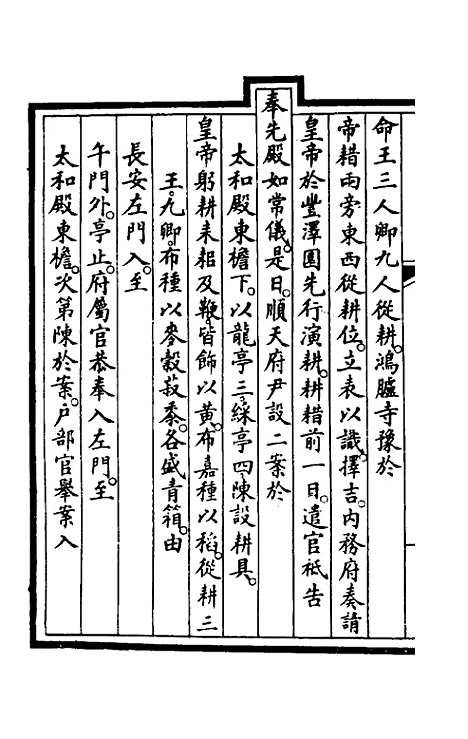 命王三人卿九人從耕。鴻臚寺豫於
帝耤兩旁東西從耕位。立表以識。擇吉。內務府奏請
皇帝於豐澤園先行演耕。耕耤前一日。遣官祗告
奉先殿如常儀。是日。順天府尹設二案於
太和殿東檐下。以龍亭三。綵亭四。陳設耕具。
皇帝躬耕耒耜及鞭。皆飾以黃。布嘉種以稻。從耕三
王。九卿。布種以麥穀菽黍。各盛青箱。由
長安左門入。至
午門外。亭止。府屬官恭奉入左門。至
太和殿東檐。次第陳於案。戶部官舉案入